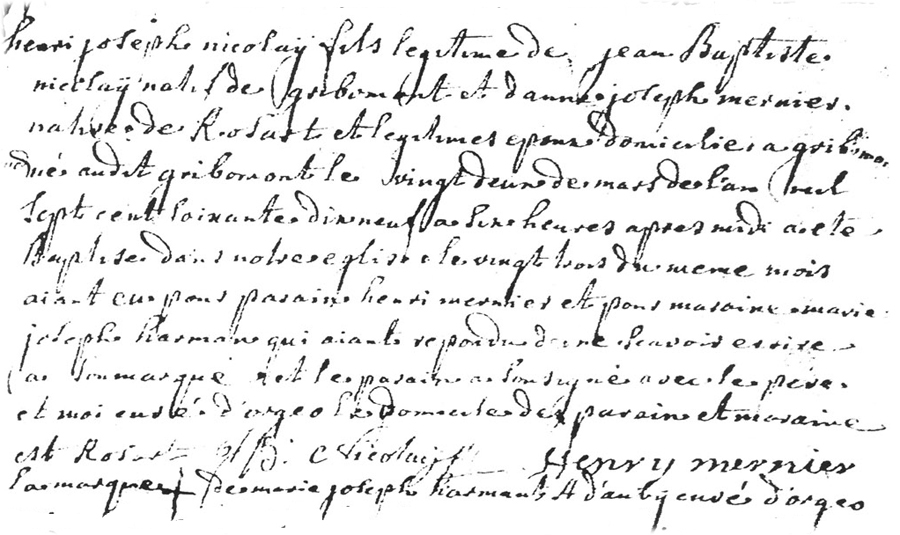 henri joseph nicolaÿ fils legitime de jean Baptiste
nicolaÿ natif de gribomont et d'anne joseph mernier
native de Rosart et legitimes epoux domiciliés a gribomon
né audit gribomont le vingt deux de mars de l'an mil
sept cent soixante dix neuf a six heures apres midi a eté
Baptise dans notre eglise le vingt trois du meme mois
aiant eu pour parain henri mernier et pour maraine marie
joseph harman qui aiant repondu de ne scavoir ecrire
a soumarqué et le parain a sousigné avec le pere
et moi curé d'orgeo le Domicile des parain et maraine
est Rosart Nicolaÿ Henry mernier
la marque + de marie joseph harmant curé d'orgeo